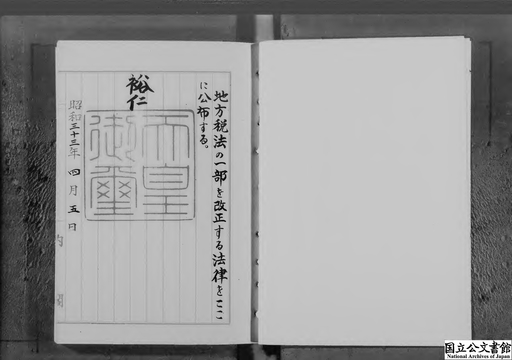 地方税法の一部を改正する法律をここ
に公布する。
裕仁
天皇
御璽
昭和三十三年四月五日
国立公文書館
National Archives of Japan